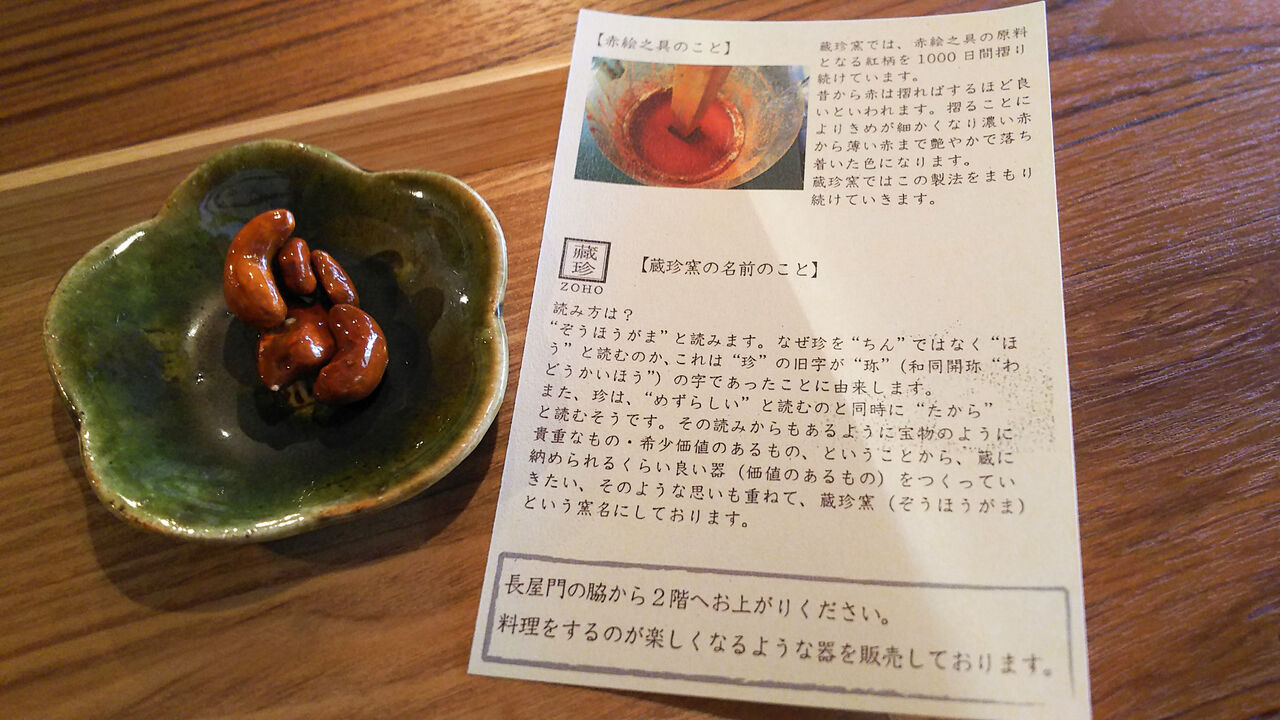 【赤絵之具のこと】
蔵珍窯では、赤絵之具の原料
となる紅柄を1000日間摺り
続けています。
昔から赤は摺ればするほど良
いといわれます。摺ることに
よりきめが細かくなり濃い赤
から薄い赤まで艶やかで落ち
着いた色になります。
蔵珍窯ではこの製法をまもり
続けていきます。
蔵
珍
ZOHO
【蔵珍窯の名前のこと】
読み方は？
“ぞうほうがま”と読みます。なぜ珍を“ちん”ではなく“ほ
う”と読むのか、これは“珍”の旧字が“珎”(和同開珎“わ
どうかいほう”)の字であったことに由来します。
また、珍は、“めずらしい”と読むのと同時に“たから”
と読むそうです。その読みからもあるように宝物のように
貴重なもの・希少価値のあるもの、ということから、蔵に
納められるくらい良い器（価値のあるもの）をつくってい
きたい、そのような思いも重ねて、蔵珍窯（ぞうほうがま）
という窯名にしております。
長屋門の脇から２階へお上がりください。
料理をするのが楽しくなるような器を販売しております。